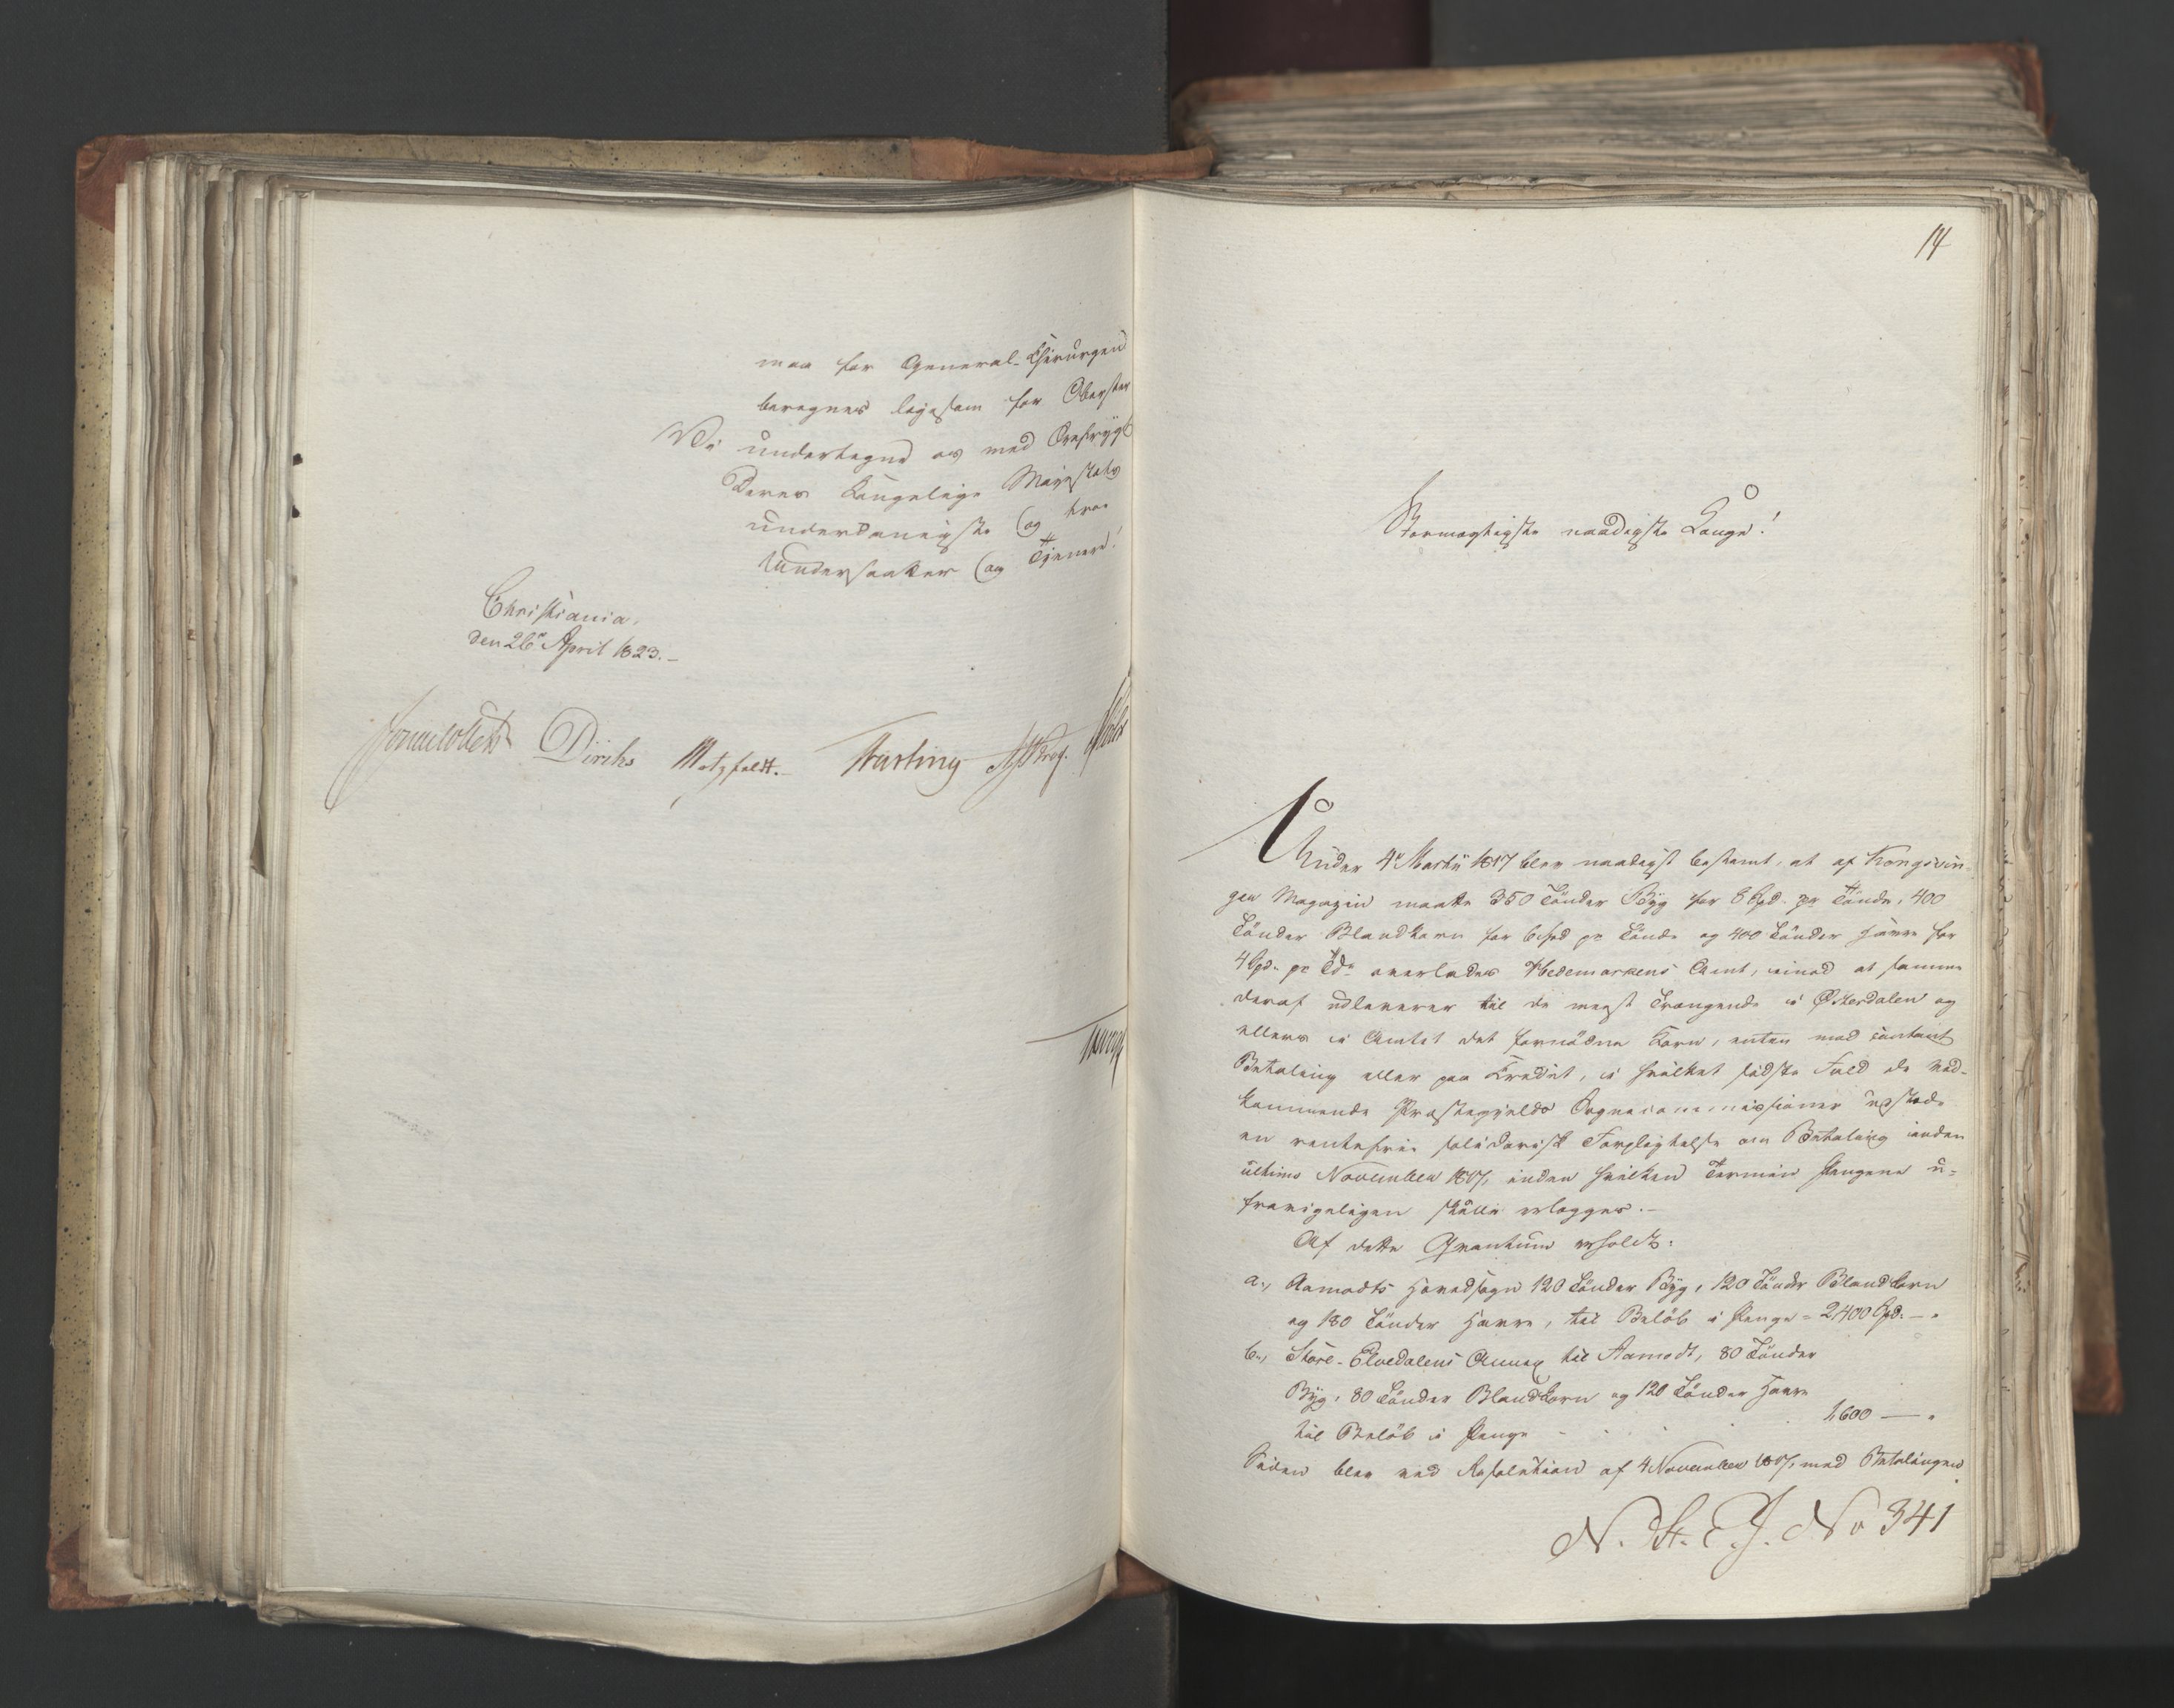 maa for General-Chirurgen
beregnes ligesom for Oberster
Vi undertegne os med Ærefrygt
Deres Kongelige Majestæts
underdanigste og troe
Undersaatter og Tjenere!
Christiania,
den 26de April 1823.
Sommerhielm Diriks Motzfeldt. Fasting Krog. Holst
14
Stormægtigste naadigste Konge!
Under 4de Martii 1817 blev naadigst bestemt, at af Kongsvin-
gen Magazin maatte 350 Tønder Byg for 8 Spd. pr Tønde, 400
Tønder Blandkorn for 6 Spd pr Tønde og 400 Tønder Havre for
4 Spd. pr Tde overlades Hedemarkens Amt, imod at samme
deraf udleverer til de meest Trængende i Østerdalen og
ellers i Amtet det fornødne Korn, enten mod contant
Betaling eller paa Credit, i hvilket sidste Fald de Ved-
kommende Præstegjelds Sognecommissioner udstæde
en rentefrie solidarisk Forpligtelse om Betaling inden
ultimo November 1817, inden hvilken Termin Pengene u-
fravigeligen skulle erlægges.-
Af dette Qvantum erholdt:
a., Aamodts Hovedsogn 120 Tønder Byg, 120 Tønder Blandkorn
og 180 Tønder Havre, til Beløb i Penge = 2400 Spd. - "
b., Store-Elvedalens Annex til Aamodt, 80 Tønder
Byg, 80 Tønder Blandkorn og 120 Tønder Havre
til Beløb i Penge - - - 1,600 — "
Siden blev ved Resolution af 4 November 1817, med Betalingen
N. St. E. J. No 341